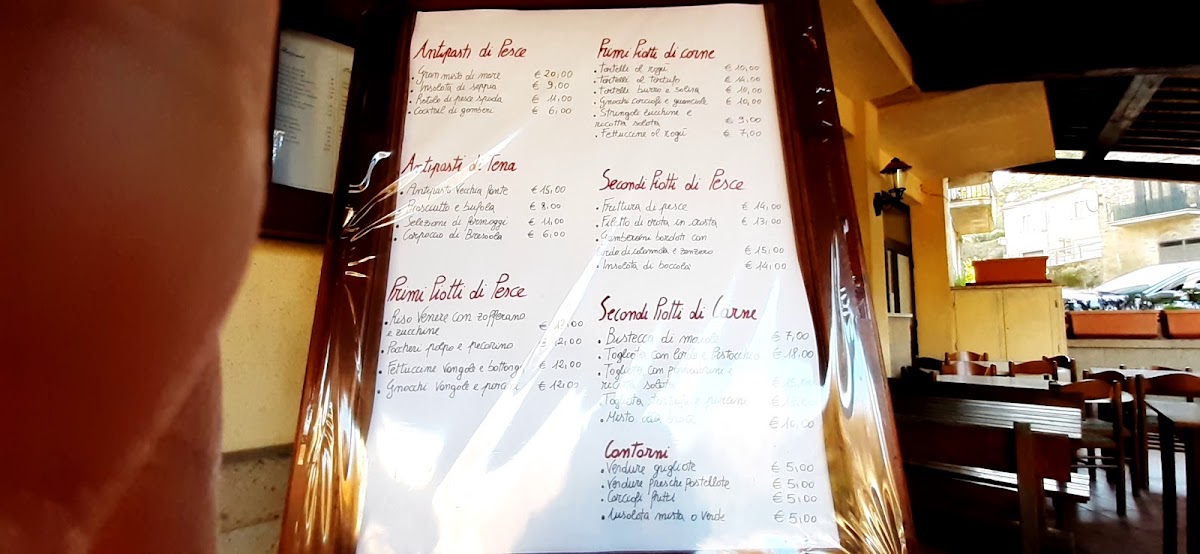 Antipasti di Pesce
• Gran misto di mare € 20,00
• Insalata di seppia € 9,00
• Rotolo di pesce spada € 11,00
• Cocktail di gamberi € 6,00
Antipasti di Terra
• Antipasto Vecchia fonte € 15,00
• Prosciutto e bufala € 8,00
• Selezione di formaggi € 11,00
• Carpaccio di Bresaola € 6,00
Primi Piatti di Pesce
• Riso Venere con zafferano
e zucchine € 12,00
• Paccheri polpo e pecorino € 12,00
• Fettuccine Vongole e bottarga € 12,00
• Gnocchi Vongole e porcini € 12,00
Primi Piatti di carne
• Tortelli al ragù € 10,00
• Tortelli al tartufo € 14,00
• Tortelli burro e salvia € 10,00
• Gnocchi carciofi e guanciale € 10,00
• Stringoli zucchine e
ricotta salata € 9,00
• Fettuccine al ragù € 7,00
Secondi Piatti di Pesce
• Frittura di pesce € 14,00
• Filetto di orata in crosta € 13,00
• Gamberoni bardati con
lardo di colonnata e zenzero € 15,00
• Insalata di baccala € 14,00
Secondi Piatti di Carne
• Bistecca di maiale € 7,00
• Tagliata con lardo e Pistacchio € 18,00
• Tagliata con
ricotta salata
• Tagliata e porcini
• Misto
Contorni
• Verdure grigliate € 5,00
• Verdure fresche Pastellate € 5,00
• Carciofi fritti € 5,00
• Insalata mista o verde € 5,00